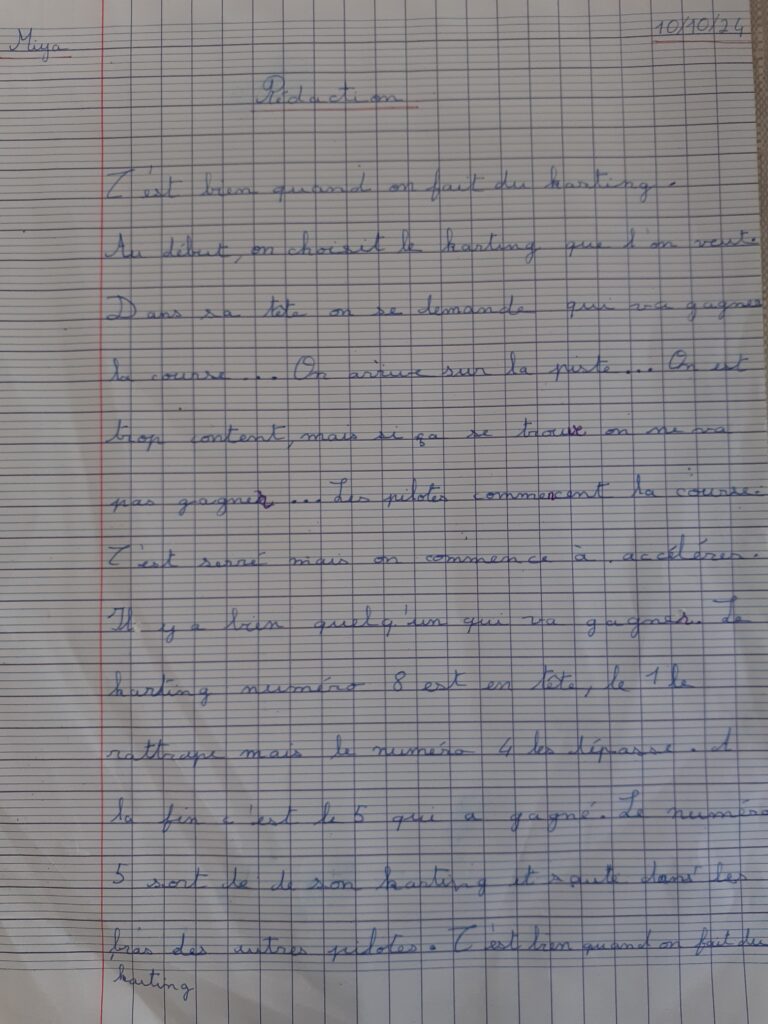 Miya
10/10/24
Rédaction
C'est bien quand on fait du karting.
Au début, on choisit le karting que l'on veut.
Dans sa tête on se demande qui va gagner
la course... On arrive sur la piste... On est
trop content, mais si ça se trouve on ne va
pas gagner... Les pilotes commencent la course.
C'est serré mais on commence à accélérer.
Il y a bien quelqu'un qui va gagner. Le
karting numéro 8 est en tête, le 1 le
rattrape mais le numéro 4 les dépasse. A
la fin c'est le 5 qui a gagné. Le numéro
5 sort de de son karting et saute dans les
bras des autres pilotes. C'est bien quand on fait du
karting